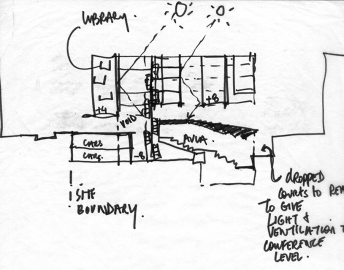 LIBRARY.
+4
VOID
+8
AULA.
CARS
CARS.
-8
SITE
BOUNDARY.
DROPPED
COURTS TO
TO GIVE
LIGHT &
VENTILATION
CONFERENCE
LEVEL.